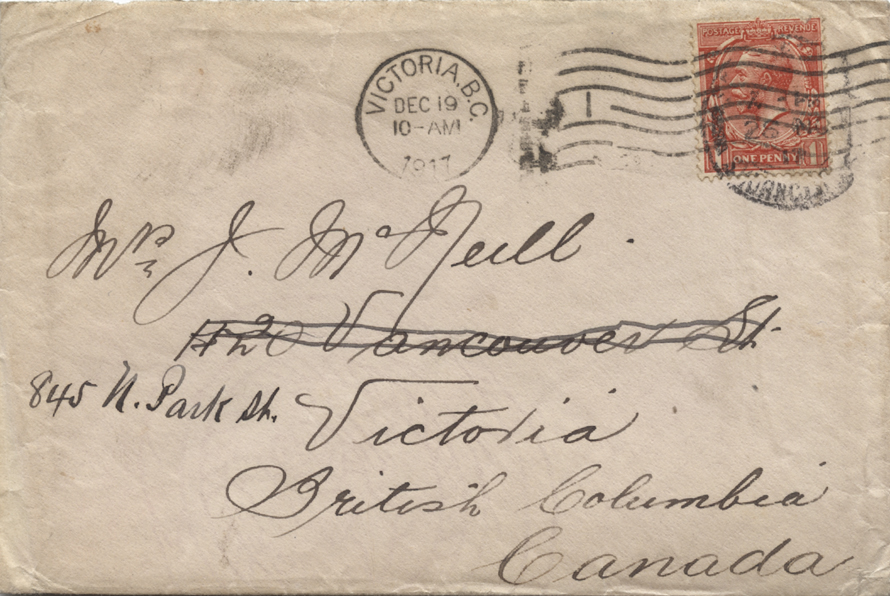 POSTAGE REVENUE
VICTORIA, B.C.
DEC 19
10-AM
1917
ONE PENNY
Mrs J. McNeill.
420 Vancouver St.
845 N. Park St.
Victoria
British Columbia
Canada